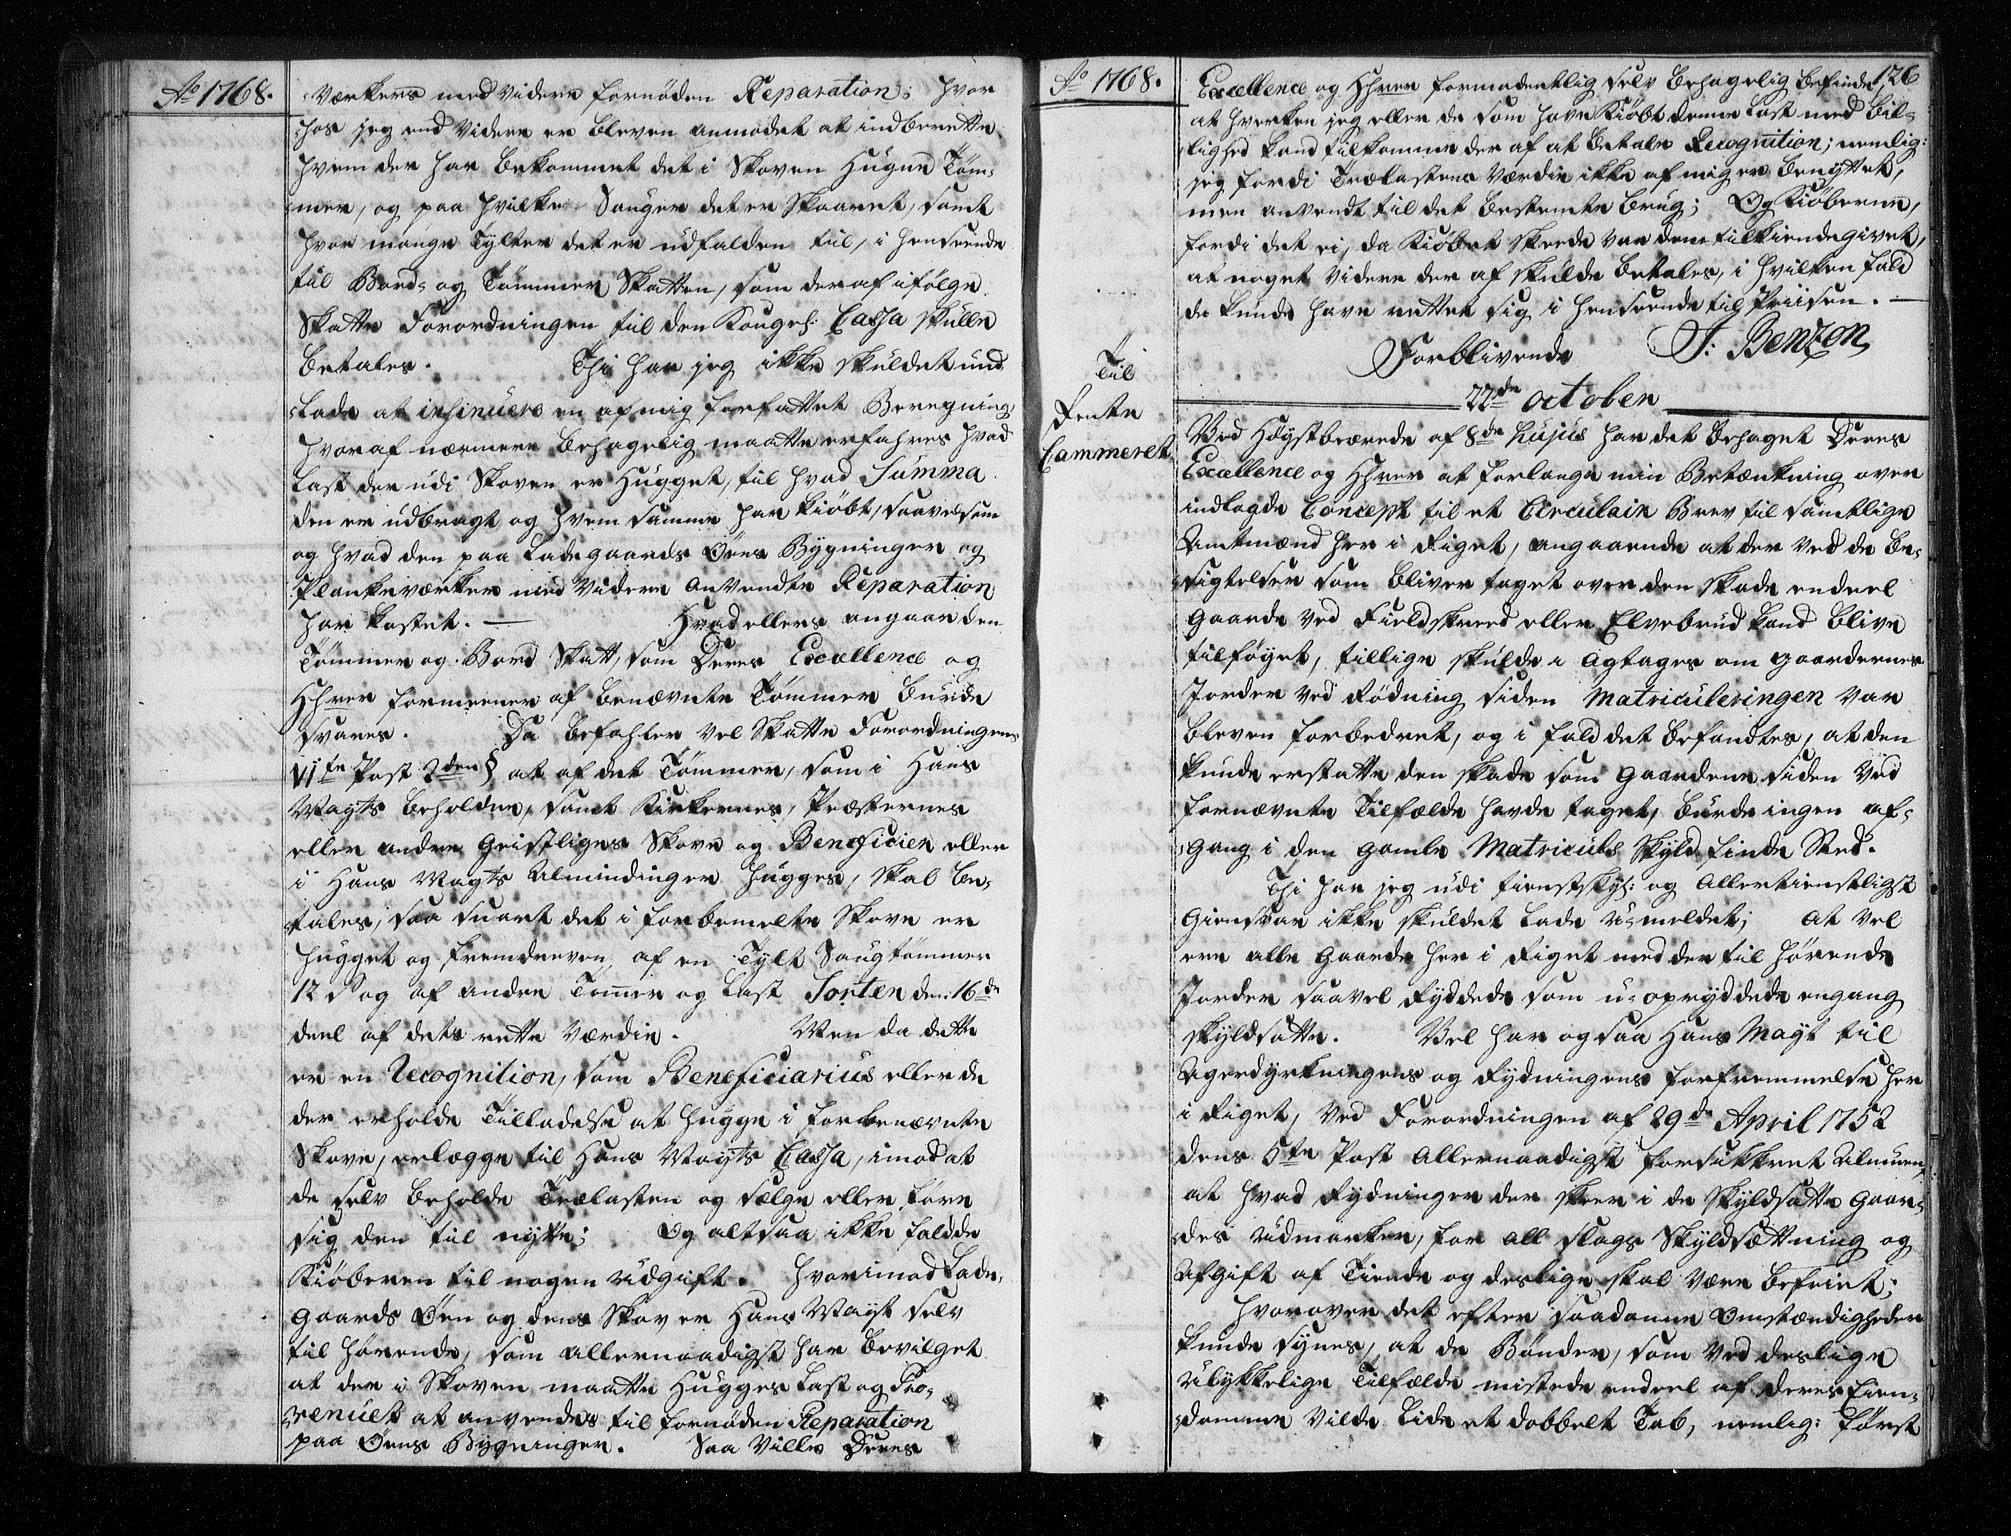 Ao 1768.
værkers med videre fornøden Reparation; hvor
hos jeg end videre er bleven anmodet at indberette
hvem der har bekommet det i Skoven hugne Tøm-
mer, og paa hvilke Sauger det er skaaret, samt
hvor mange Tylter det er udfalden til, i henseende
til Bord- og Tømmer Skatten, som deraf ifølge
Skatte Forordningen til den Kongel: Cassa skulle
betales. Thi har jeg ikke skuldet und
lade at insinuere en af mig forfattet Beregning,
hvoraf nærmere behagelig maatte erfahres hvad
Last der udi Skoven er hugget, til hvad Summa
den er udbragt og hvem samme har kiøbt, saavelsom
og hvad den paa Ladegaards Øens Bygninger og
Plankeværker med videre anvendte Reparation
har kostet. — Hvad ellers angaar den
Tømmer og Bord Skatt, som Deres Excellence og
Hhrer formeener af benævnte Tømmer burde
svares. Da befahler vel Skatte Forordningens
VIte Post 2den § at af det Tømmer, som i Hans
Mayts beholdne, samt Kirkernes, Præsternes
eller andre Geistliges Skove og Beneficier eller
i Hans Mayts Almindinger hugges, skal be-
tales, saa snart det i forbemelte Skove er
hugget og fremdreven, af en Tylt Saugtømmer
12 s og af andre Tømmer og Last Sorten den 16de
deel af dets rette Værdie. Men da dette
er en Recognition, som Beneficiarius eller de
der erholde Tilladelse at hugge i forbenævnte
Skove, erlægge til Hans Mayts Cassa, imod at
de selv beholde Trælasten og sælge eller føre
sig den til nytte; Og altsaa ikke faldde
Kiøberen til nogen udgift. hvorimod Lade-
gaards Øen og dens Skov er Hans Mayt selv
til hørende, som allernaadigst har bevilget
at der i Skoven maatte hugges Last og Pro-
venuet at anvendes til fornøden Reparation
paa Øens Bygninger. Saa ville Deres
Ao 1768.
126
Excellence og Hhrer formodentlig selv behagelig befinde,
at hverken jeg eller de som have kiøbt denne Last med Bil-
lighed kand tilkomme der af at betale Recognition; nemlig:
jeg fordi Trælastens Værdie ikke af mig er benyttet,
men anvendt til det bestemte brug; Og Kiøberne,
fordi det ei, da Kiøbet skeede var dem tilkiendegivet,
at noget videre der af skulde betales, i hvilken fald
de kunde have rettet sig i henseende til Priisen. —
Forblivende J: Bentzen
22de October
Til
Rente
Cammeret
Ved Høystbeærede af 8de hujus har det behaget Deres
Excellence og Hhrer at forlange min Betænkning over
indlagde Concept til et Circulair Brev til samtlige
Amtmænd her i Riget, angaaende at der ved de be-
sigtelser som bliver taget over den skade endeel
Gaarde ved Fieldskreed eller Elvebrud kand blive
tilføyet, tillige skulde i agtages om Gaardernes
Jorder ved Rødning siden Matriculeringen var
bleven forbedret, og i fald det befandtes, at den
kunde erstatte den skade som Gaardene siden ved
fornævnte Tilfælde havde taget, burde ingen af-
gang i den gamle Matriculs Skyld finde Sted.
Thi har jeg udi tienstskyl: og allertienstligst
Giensvar ikke skuldet lade u-meldet; at vel
ere alle Gaarde her i Riget med der til hørende
Jorder saavel Ryddede som u-opryddede engang
skyldsatte. Vel har og saa Hans Mayt til
Agerdyrkningens og Rydningens forfremmelse her
i Riget, ved Forordningen af 29de April 1752
dens 5te Post allernaadigst forsikkret Almuen,
at hvad Rydninger der skeer i de skyldsatte Gaar-
des udmarker, for all slags Skyldsættning og
Afgift af Tiende og deslige skal være befriet;
hvorover det efter saadanne Omstændigheder
kunde synes, at de Bønder, som ved deslige
ulykkelige Tilfælde mistede endeel af deres Eien-
domme vilde lide et dobbelt Tab, nemlig: først